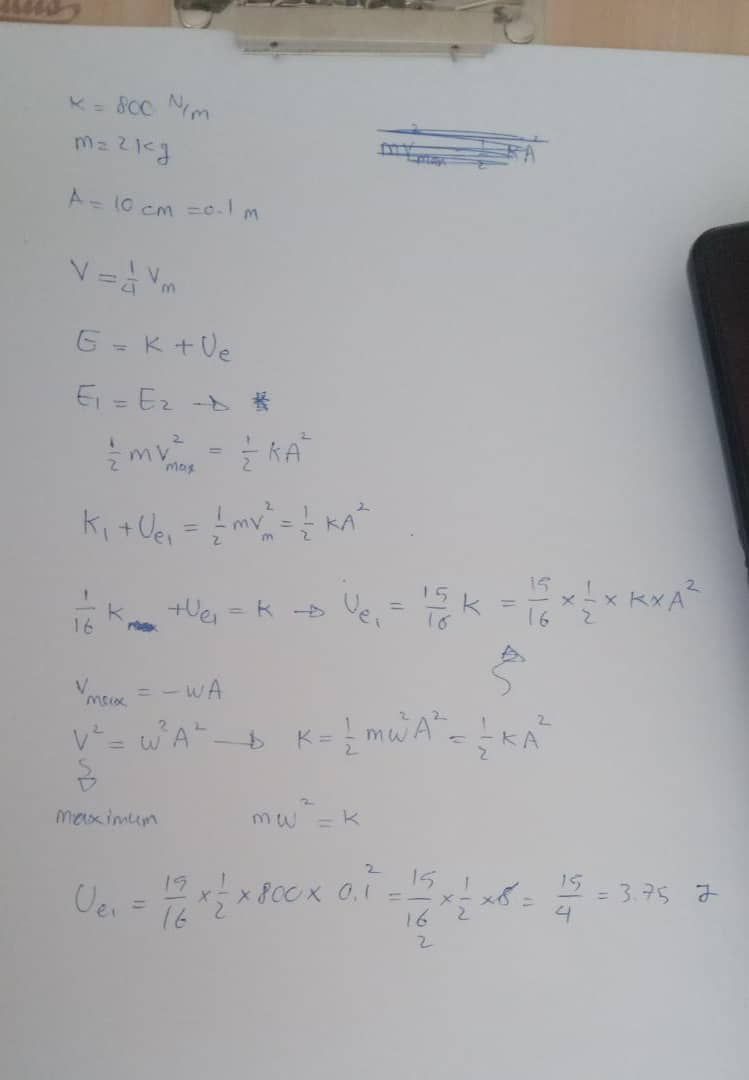 K = 800 N/m
m = 2 kg
A = 10 cm = 0.1 m
V = 1/4 Vm
E = K + Ue
E1 = E2 →
1/2 mV²max = 1/2 KA²
K1 + Ue1 = 1/2 mv²m = 1/2 KA²
1/16 K + Ue1 = K → Ue1 = 15/16 K = 15/16 × 1/2 × K × A²
Vmax = -wA
V² = w²A² → K = 1/2 mw²A² = 1/2 KA²
maximum mw² = K
Ue1 = 15/16 × 1/2 × 800 × 0.1² = 15/16 × 1/2 × 8 = 15/4 = 3.75 J
2